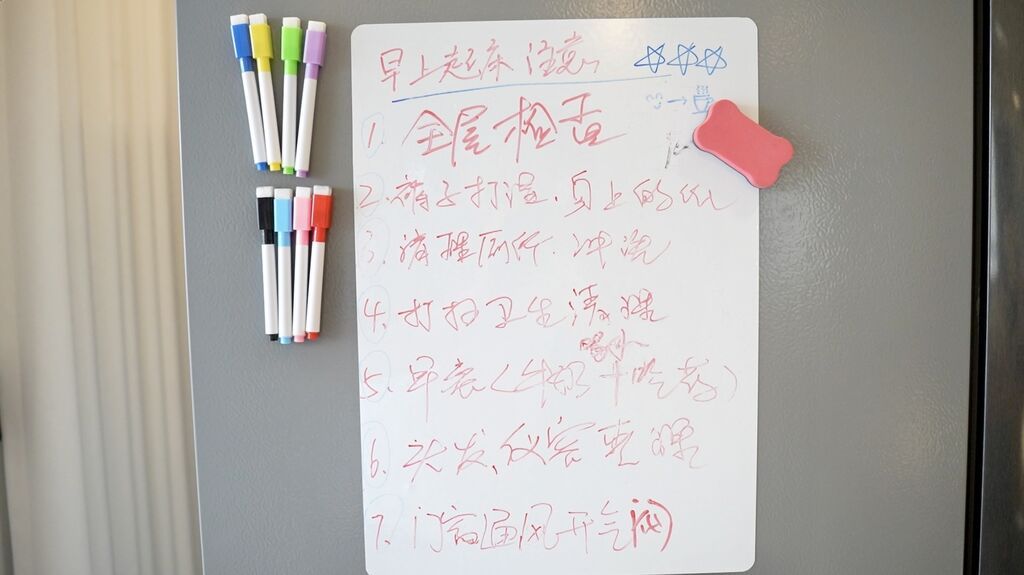 早上起床注意
1. 全屋检查
2. 裤子打湿.身上的
3. 清理厕所.冲洗
4. 打扫卫生清理
5. 早餐(牛奶+吃药)
喝水
6. 头发、仪容整理
7. 门窗通风开气